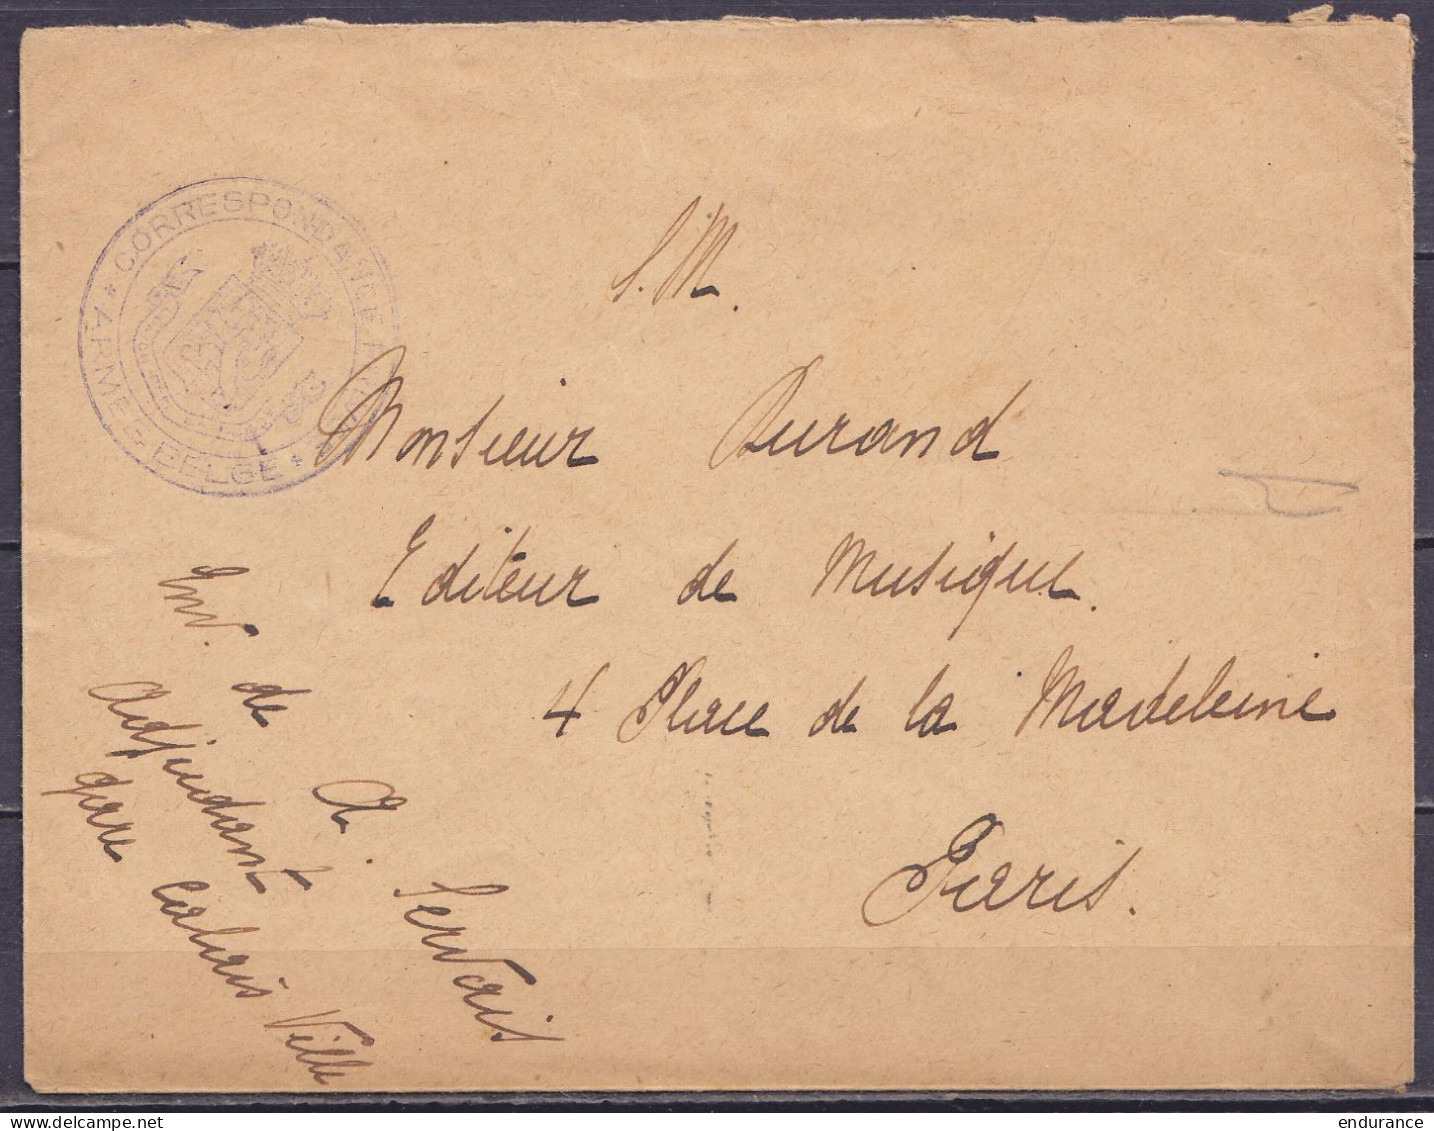 CORRESPONDANCE
ARMEE BELGE
S.M.
Monsieur Durand
Editeur de Musique.
4 Place de la Madeleine
Paris.
Env. de A. Servais
Adjudant
gare Calais Ville
endurance